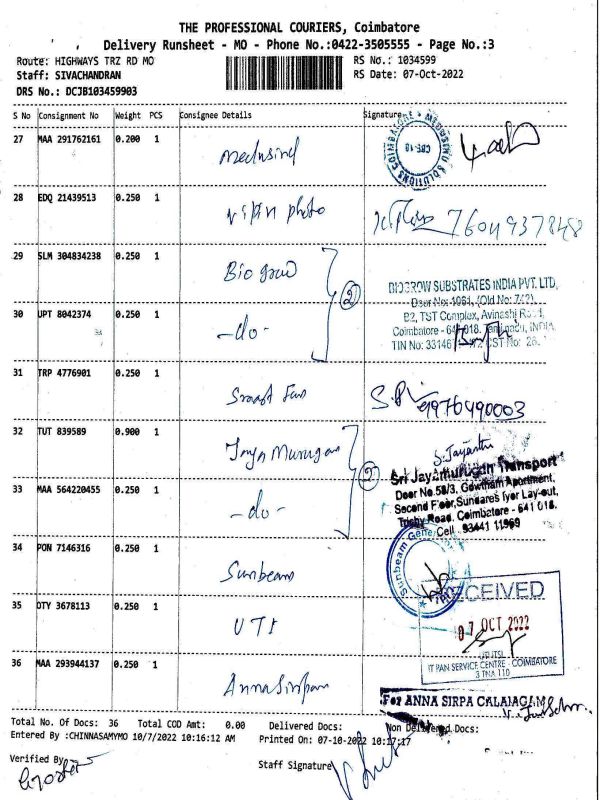 THE PROFESSIONAL COURIERS, Coimbatore
Delivery Runsheet - MO - Phone No.:0422-3505555 - Page No.:3
Route: HIGHWAYS TRZ RD MO
RS No.: 1034599
Staff: SIVACHANDRAN
RS Date: 07-Oct-2022
DRS No.: DCJB103459903
S No Consignment No Weight PCS Consignee Details Signature
27 MAA 291762161 0.200 1
28 EDQ 21439513 0.250 1 photo 7604937848
29 SLM 304834238 0.250 1 Bio grow
BIOGROW SUBSTRATES INDIA PVT. LTD,
Door No: 1061, (Old No: 742),
B2, TST Complex, Avinashi Road,
30 UPT 8042374 0.250 1 -do-
Coimbatore - 641 018. Tamilnadu, INDIA.
31 TRP 4776901 0.250 1 9976490003
32 TUT 839589 0.900 1 Jaya Murugan
S. Jayanthi
Sri Jayamurugan Transport
Door No.58/3, Gowtham Apartment,
33 MAA 564220455 0.250 1 -do-
Second Floor, Sundares Iyer Lay-out,
Trichy Road, Coimbatore - 641 018.
Cell : 93441 11969
34 PON 7146316 0.250 1 Sunbeam
Sunbeam
RECEIVED
35 OTY 3678113 0.250 1 UTI
07 OCT 2022
UTIITSL
IT PAN SERVICE CENTRE - COIMBATORE
3 TNA 110
36 MAA 293944137 0.250 1
For ANNA SIRPA CALAIAGAM
Total No. Of Docs: 36 Total COD Amt: 0.00 Delivered Docs: Non Delivered Docs:
Entered By :CHINNASAMYMO 10/7/2022 10:16:12 AM Printed On: 07-10-2022 10:17:17
Verified By
Staff Signature